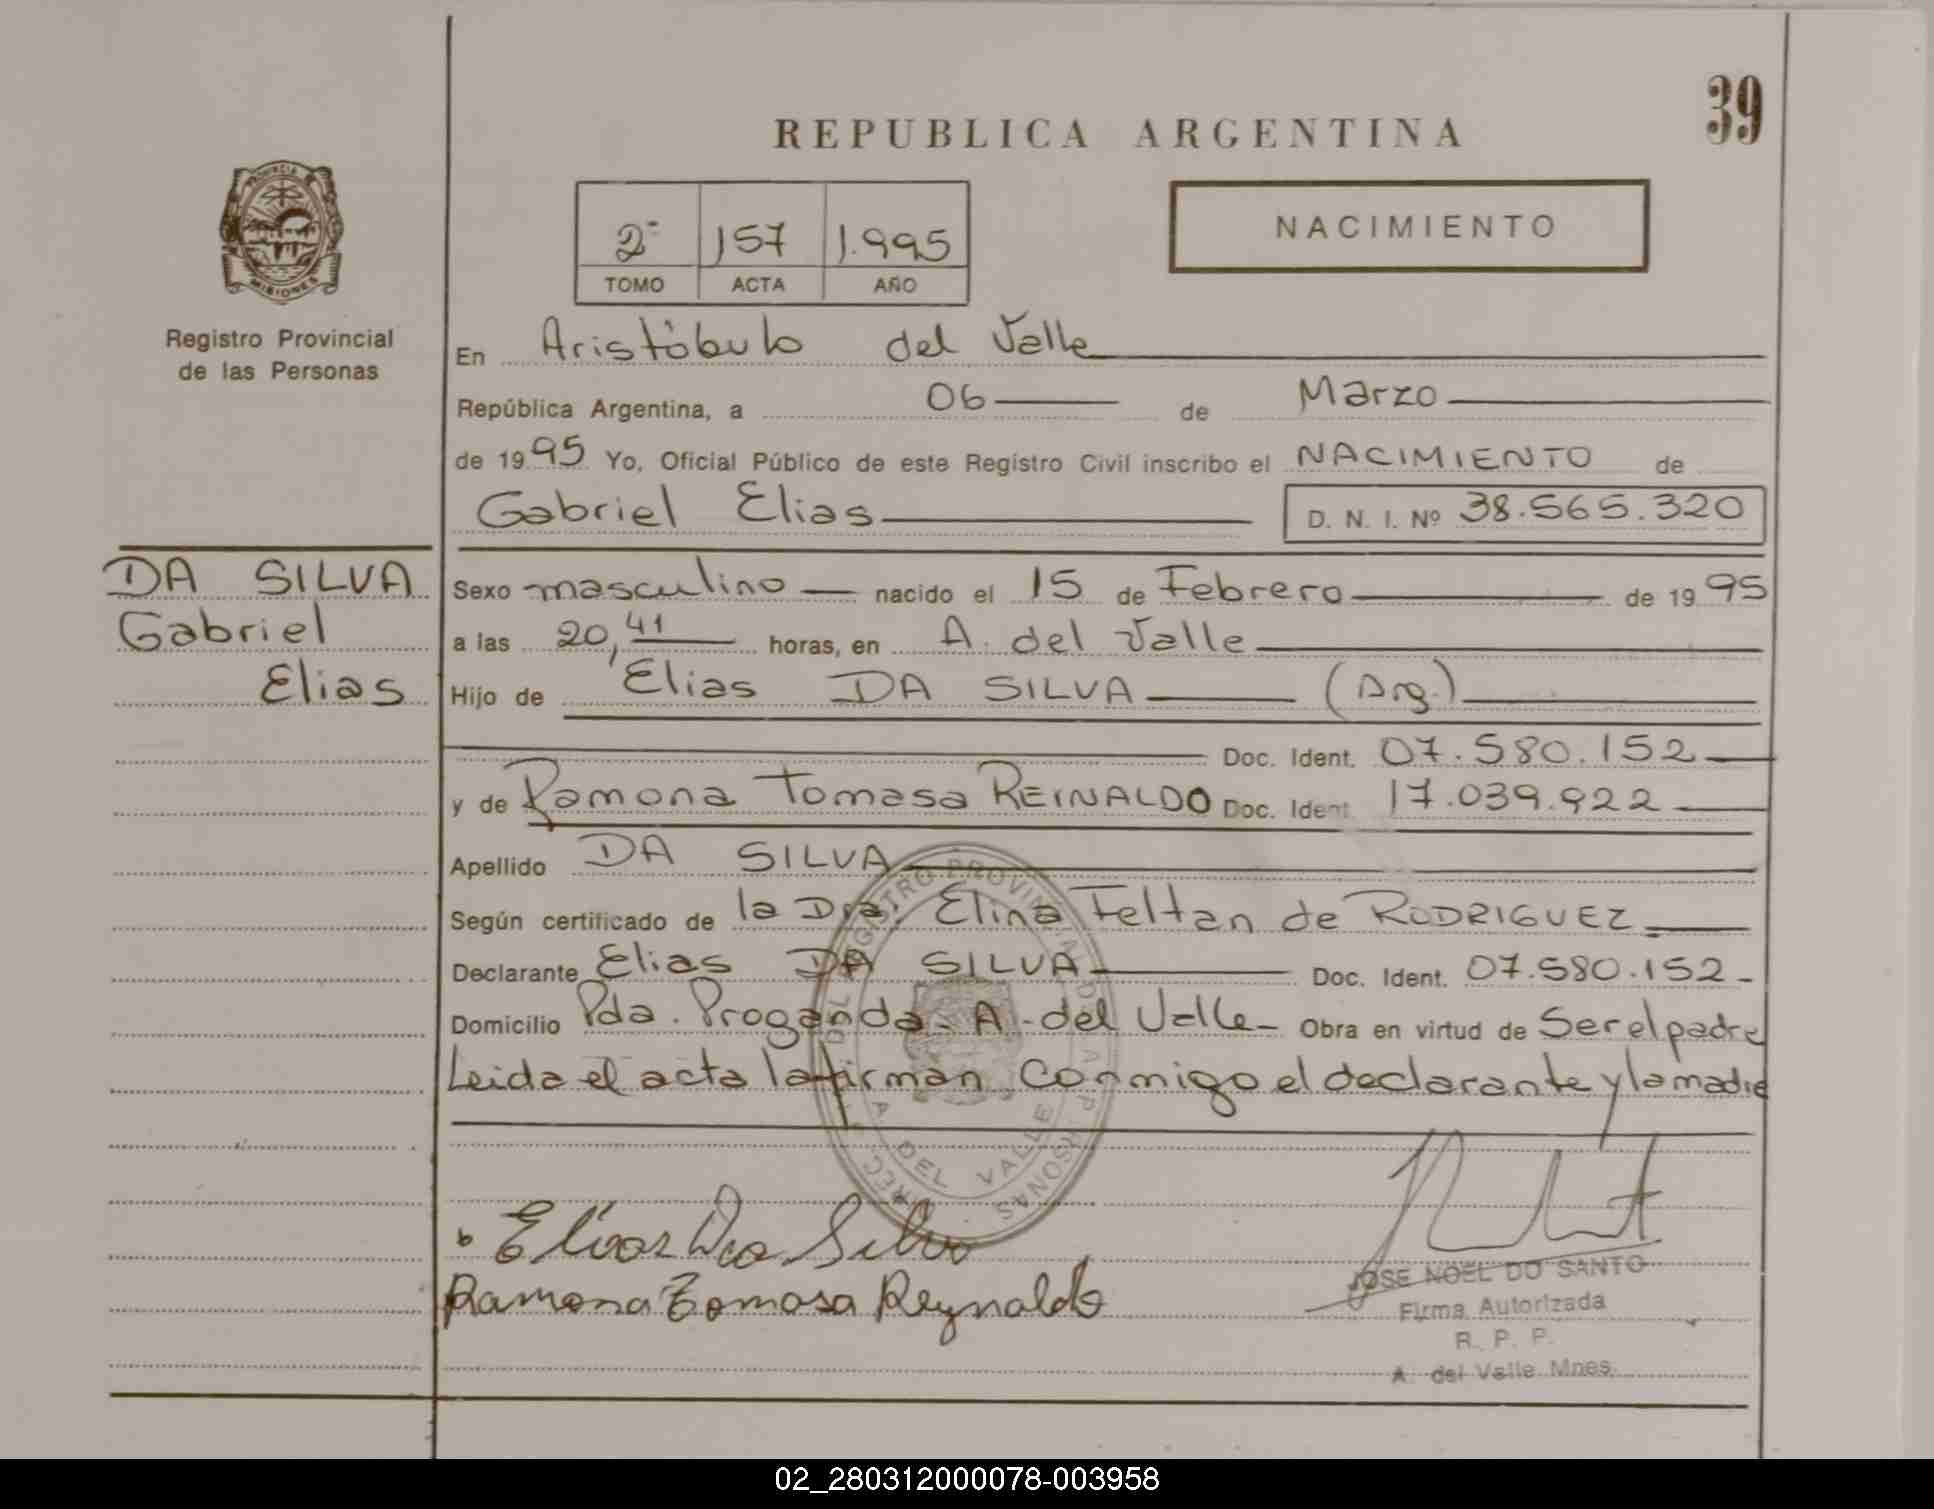 39
REPUBLICA ARGENTINA
PROVINCIA DE
MISIONES
Registro Provincial
de las Personas
2º 157 1.995
TOMO ACTA AÑO
NACIMIENTO
En Aristóbulo del Valle
República Argentina, a 06 de Marzo
de 1995 Yo, Oficial Público de este Registro Civil inscribo el NACIMIENTO de
Gabriel Elias D. N. I. Nº 38.565.320
DA SILVA
Gabriel
Elias
Sexo masculino nacido el 15 de Febrero de 1995
a las 20,41 horas, en A. del Valle
Hijo de Elias DA SILVA (Arg.)
Doc. Ident. 07.580.152
y de Ramona Tomasa REINALDO Doc. Ident. 17.039.922
Apellido DA SILVA
Según certificado de la Dra. Elina Feltan de RODRIGUEZ
Declarante Elias DA SILVA Doc. Ident. 07.580.152
Domicilio Pda. Proganda - A. del Valle - Obra en virtud de Ser el padre
Leida el acta la firman conmigo el declarante y la madre
DEL REGISTRO PROVINCIAL DE LAS PERSONAS
A. DEL VALLE
Elias Da Silva
Ramona Tomasa Reynaldo
JOSE NOEL DO SANTO
Firma Autorizada
R. P. P.
A. del Valle Mnes.
02_280312000078-003958